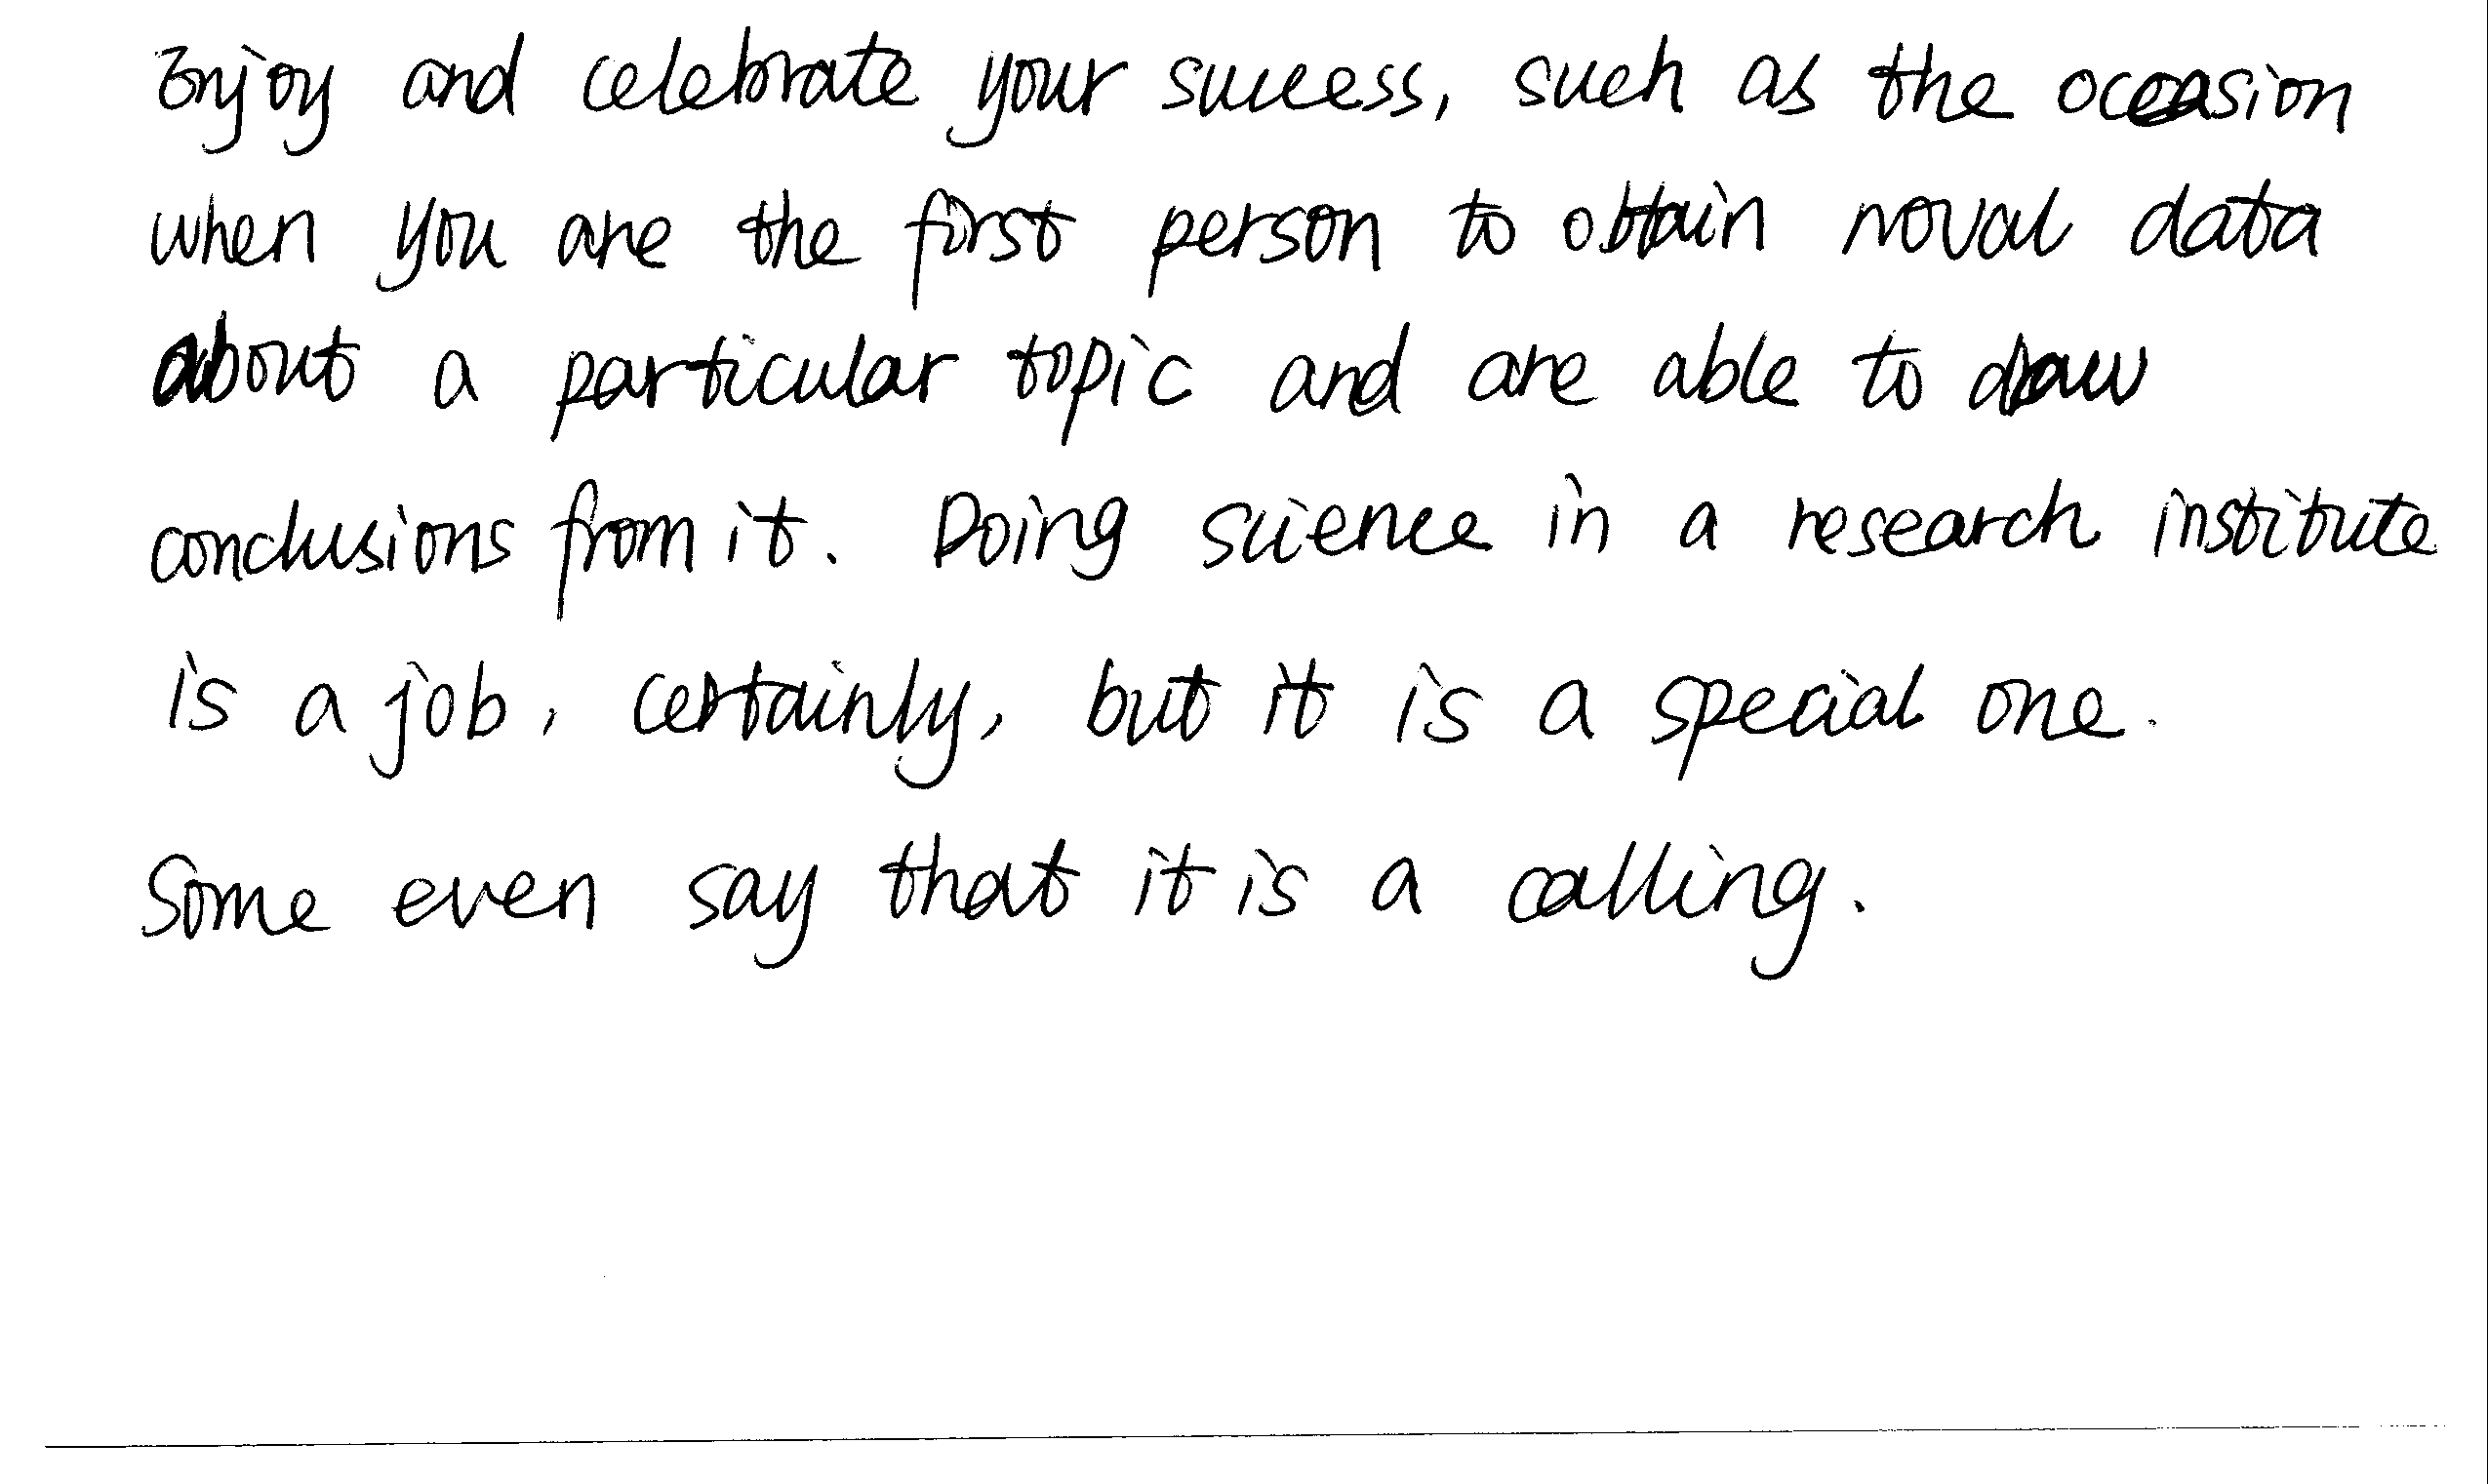 Enjoy and celebrate your success, such as the occasion
when you are the first person to obtain noval data
about a particular topic and are able to draw
conclusions from it. Doing science in a research institute
is a job, certainly, but it is a special one.
Some even say that it is a calling.